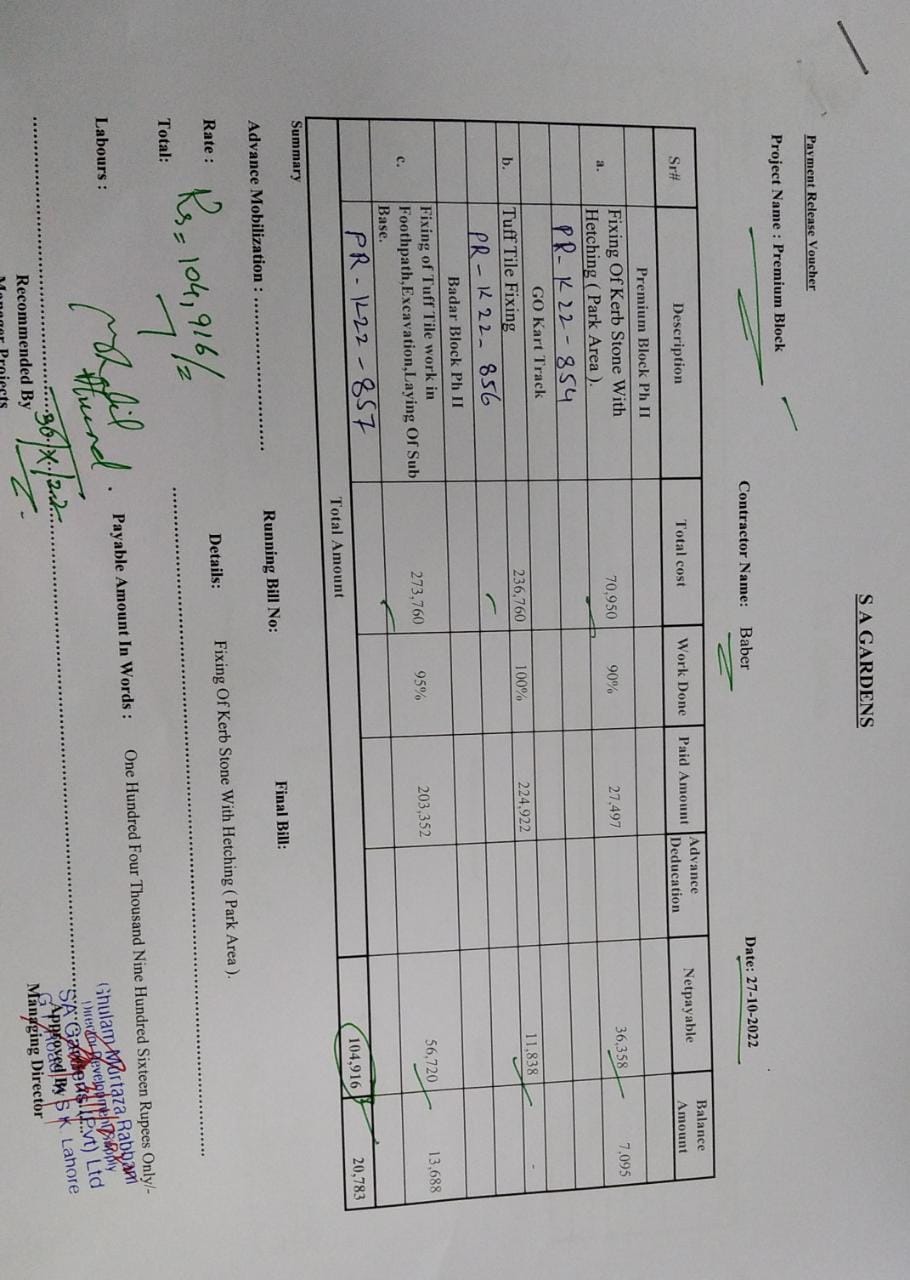 S A GARDENS
Payment Release Voucher
Project Name : Premium Block Contractor Name: Baber Date: 27-10-2022
Sr# Description Total cost Work Done Paid Amount Advance Deducation Netpayable Balance Amount
Premium Block Ph II
a. Fixing Of Kerb Stone With Hetching ( Park Area ). 70,950 90% 27,497 36,358 7,095
PR-K22-854
GO Kart Track
b. Tuff Tile Fixing 236,760 100% 224,922 11,838 -
PR-K22-856
Badar Block Ph II
c. Fixing of Tuff Tile work in Foothpath,Excavation,Laying Of Sub Base. 273,760 95% 203,352 56,720 13,688
PR-K22-857
Total Amount 104,916 20,783
Summary
Advance Mobilization : .................... Running Bill No: Final Bill:
Rate : Details: Fixing Of Kerb Stone With Hetching ( Park Area ).
Rs= 104,916/=
Total:
Labours : Payable Amount In Words : One Hundred Four Thousand Nine Hundred Sixteen Rupees Only/-
Ghulam Murtaza Rabbani
SA Gardens (Pvt) Ltd
Lahore
Recommended By Approved By
Manager Projects Managing Director